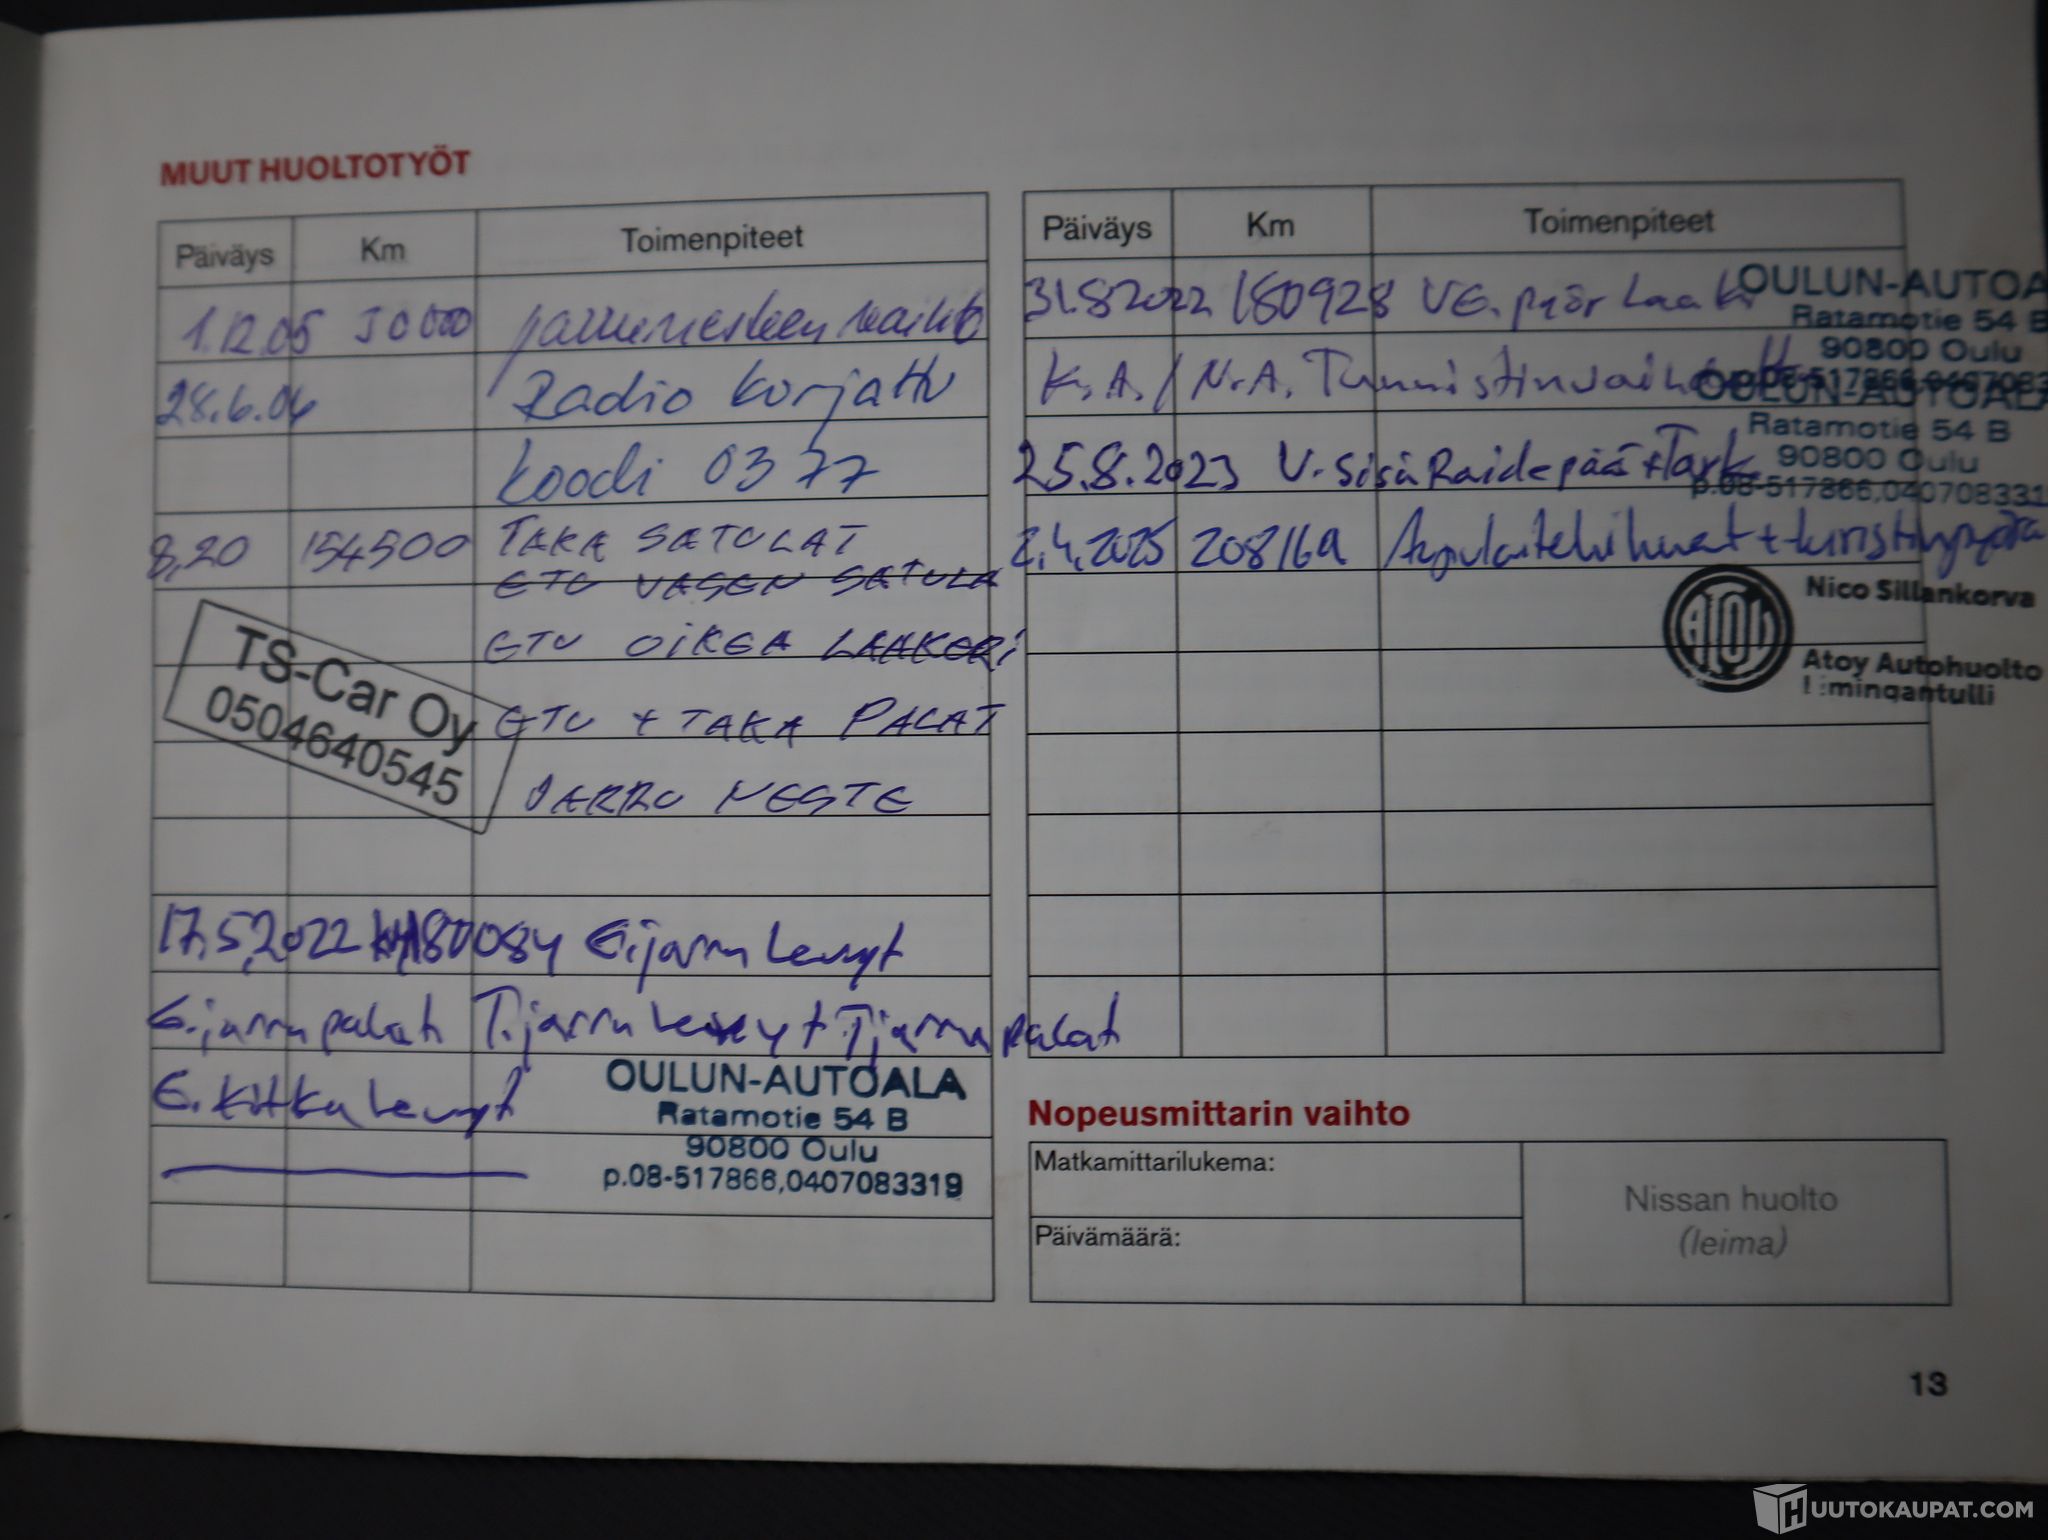 MUUT HUOLTOTYÖT
Päiväys Km Toimenpiteet
1.12.05 50000 jarrunesteen vaihto
28.6.06 Radio korjattu
koodi 0377
8,20 154500 TAKA SATULAT
ETU VASEN SATULA
ETU OIKEA LAAKERI
TS-Car Oy
0504640545
ETU + TAKA PALAT
JARRU NESTE
17.5.2022 180084 E.jarru Levyt
E.jarrupalat T.jarru Levyt T.jarru palat
E. kitka Levyt
OULUN-AUTOALA
Ratamotie 54 B
90800 Oulu
p.08-517866,0407083319
Päiväys Km Toimenpiteet
31.8.2022 180928 VE. pyör Laak
OULUN-AUTOA
Ratamotie 54 B
90800 Oulu
K.A. / N.A. Tunnistin
OULUN-AUTOALA
Ratamotie 54 B
90800 Oulu
p.08-517866,040708331
25.8.2023 V. Sisä Raidepää + Tark
2.4.2025 208169
Nico Sillankorva
ATOY
Atoy Autohuolto
Limingantulli
Nopeusmittarin vaihto
Matkamittarilukema:
Päivämäärä:
Nissan huolto
(leima)
13
HUUTOKAUPAT.COM